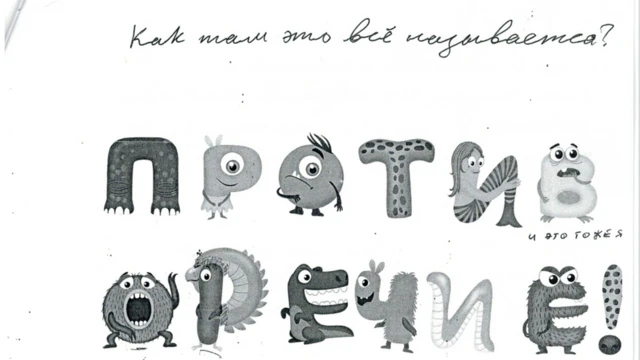 Как там это всё называется?
ПРОТИВ
И ЭТО ТОЖЕ Я
ОРЕЧИЕ!